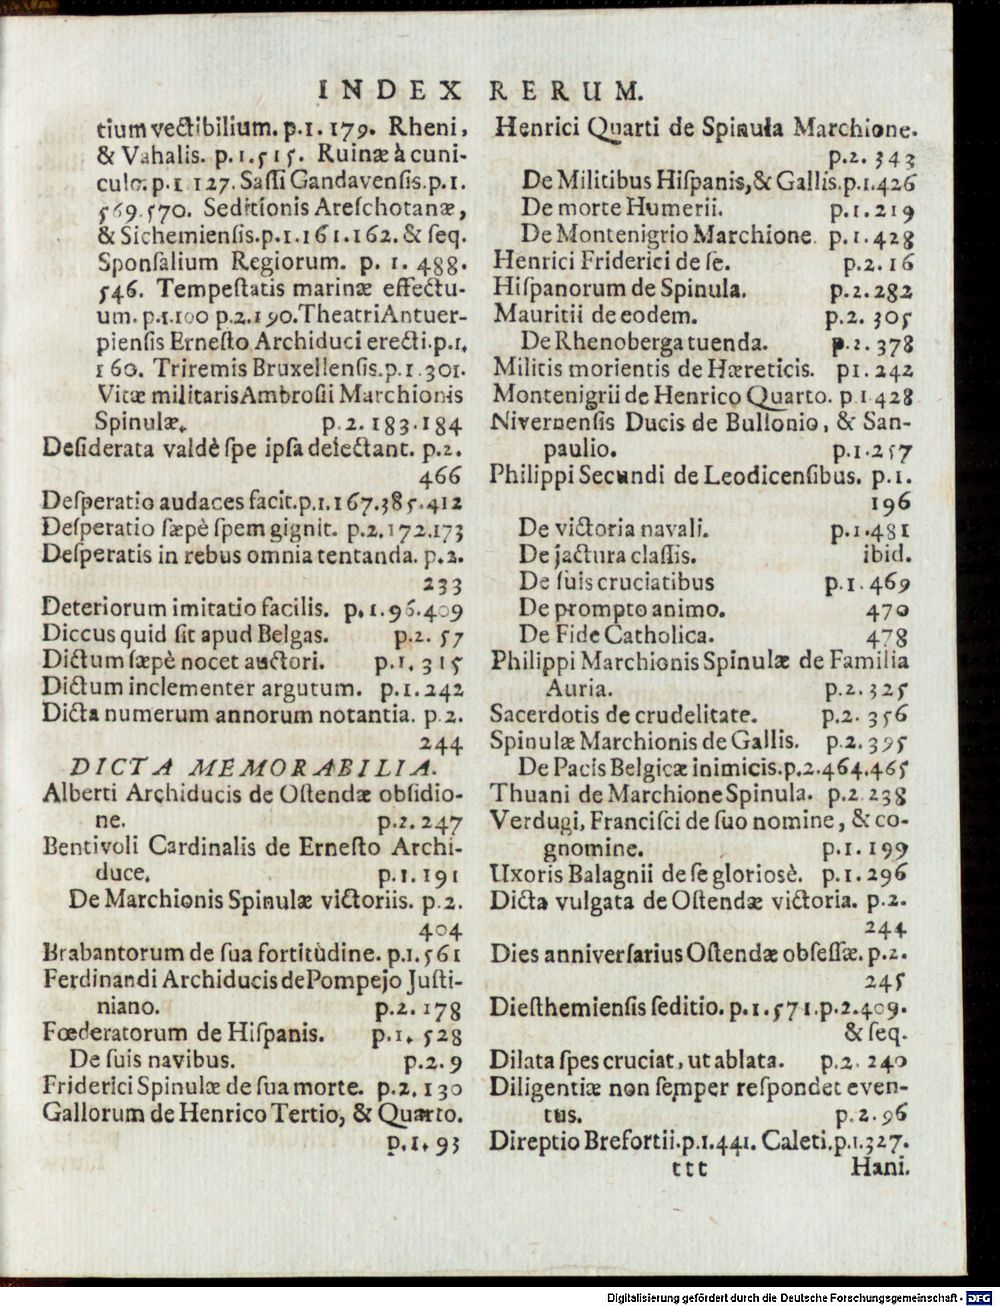 INDEX RERUM.
tium vectibilium. p.1. 179. Rheni,
& Vahalis. p.1.515. Ruinæ à cuni-
culo. p.1 127. Saſſi Gandavenſis.p.1.
569.570. Seditionis Areſchotanæ,
& Sichemienſis.p.1.161.162. & ſeq.
Sponſalium Regiorum. p. 1. 488.
546. Tempeſtatis marinæ effectu-
um. p.1.100 p.2.190. Theatri Antuer-
pienſis Erneſto Archiduci erecti.p.1.
160. Triremis Bruxellenſis.p.1.301.
Vitæ militaris Ambroſii Marchionis
Spinulæ. p.2.183.184
Deſiderata valdè ſpe ipſa delectant. p.2.
466
Deſperatio audaces facit.p.1.167.385.412
Deſperatio ſæpè ſpem gignit. p.2.172.173
Deſperatis in rebus omnia tentanda. p.2.
233
Deteriorum imitatio facilis. p.1.96.409
Diccus quid ſit apud Belgas. p.2. 57
Dictum ſæpè nocet auctori. p.1. 315
Dictum inclementer argutum. p.1.242
Dicta numerum annorum notantia. p.2.
244
DICTA MEMORABILIA.
Alberti Archiducis de Oſtendæ obſidio-
ne. p.2. 247
Bentivoli Cardinalis de Erneſto Archi-
duce. p.1.191
De Marchionis Spinulæ victoriis. p.2.
404
Brabantorum de ſua fortitùdine. p.1.561
Ferdinandi Archiducis de Pompejo Juſti-
niano. p.2. 178
Fœderatorum de Hiſpanis. p.1. 528
De ſuis navibus. p.2.9
Friderici Spinulæ de ſua morte. p.2.130
Gallorum de Henrico Tertio, & Quarto.
p.1.93
Henrici Quarti de Spinula Marchione.
p.2. 343
De Militibus Hiſpanis, & Gallis.p.1.426
De morte Humerii. p.1.219
De Montenigrio Marchione. p.1.428
Henrici Friderici de ſe. p.2.16
Hiſpanorum de Spinula. p.2.282
Mauritii de eodem. p.2. 305
De Rhenoberga tuenda. p.2.378
Militis morientis de Hæreticis. p1.242
Montenigrii de Henrico Quarto. p.1.428
Nivernenſis Ducis de Bullonio, & San-
paulio. p.1.257
Philippi Secundi de Leodicenſibus. p.1.
196
De victoria navali. p.1.481
De jactura claſſis. ibid.
De ſuis cruciatibus p.1.469
De prompto animo. 470
De Fide Catholica. 478
Philippi Marchionis Spinulæ de Familia
Auria. p.2.325
Sacerdotis de crudelitate. p.2. 356
Spinulæ Marchionis de Gallis. p.2.395
De Pacis Belgicæ inimicis.p.2.464.465
Thuani de Marchione Spinula. p.2 238
Verdugi, Franciſci de ſuo nomine, & co-
gnomine. p.1.199
Uxoris Balagnii de ſe glorioſè. p.1.296
Dicta vulgata de Oſtendæ victoria. p.2.
244
Dies anniverſarius Oſtendæ obſeſſæ. p.2.
245
Dieſthemienſis ſeditio. p.1.571.p.2.409.
& ſeq.
Dilata ſpes cruciat, ut ablata. p.2. 240
Diligentiæ non ſemper reſpondet even-
tus. p.2.96
Direptio Brefortii.p.1.441. Caleti.p.1.327.
ttt Hani.
Digitalisierung gefördert durch die Deutsche Forschungsgemeinschaft - DFG